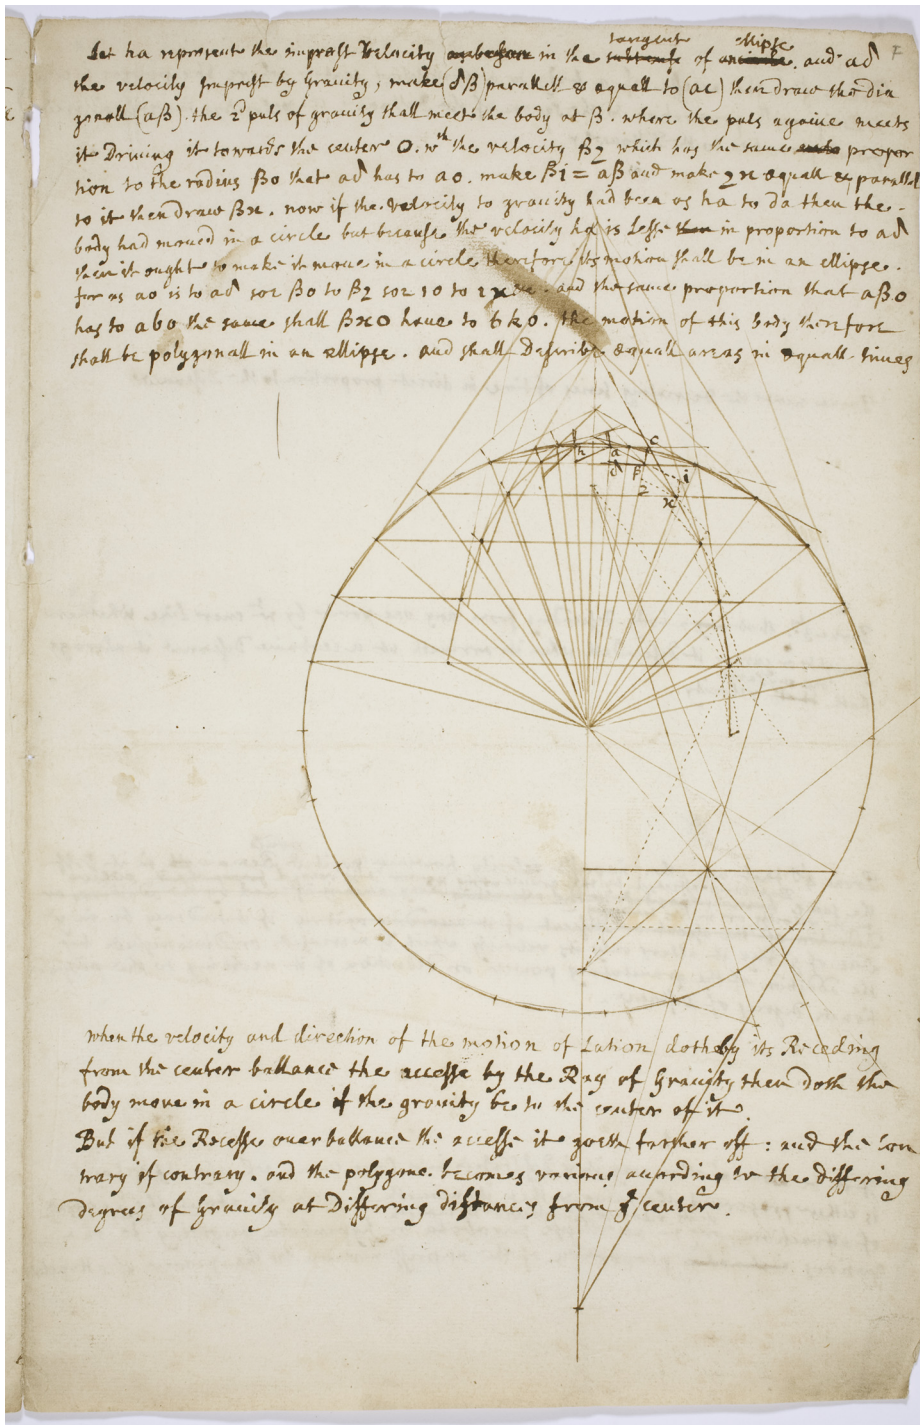 Let ha represent the imprest Velocity in the tangent of ellipse. and ad
the velocity Imprest by Gravity, make (dβ) parallell & equall to (ac) then draw the dia
gonall (aβ). the 2d puls of gravity shall meet the body at β. where the puls againe meets
it Driving it towards the center O. wth the velocity β2 which has the same propor
tion to the radius βo that ad has to ao. make βi = aβ and make 2x equall & parallel
to it then draw βx. now if the velocity to gravity had been as ha to da then the
body had moued in a circle but because the velocity ha is Lesse in proportion to ad
then it ought to make it moue in a circle therefore its motion shall be in an ellipse.
for as ao is to ad soe βo to β2 soe io to and the same proportion that aβo
has to abo the same shall βxo have to bko. the motion of this body therefore
shall be polygonall in an ellipse. and shall Describe equall areas in equall times
7
c
h
a
d
β
i
2
x
when the velocity and direction of the motion of Lation doth by its Receding
from the center ballance the accesse by the Ray of Gravity then Doth the
body moue in a circle if the gravity be to the center of it.
But if the Recesse ouerballance the accesse it goeth farther off: and the Con
trary if contrary. and the polygone becomes various according to the differing
Degrees of Gravity at Differing distances from ye center.